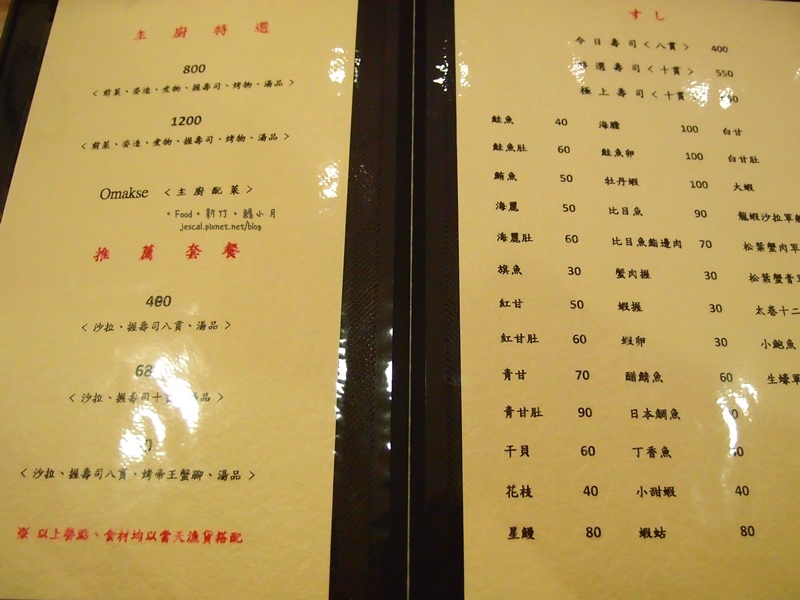 主廚特選
800
<前菜、姿造、煮物、握壽司、烤物、湯品>
1200
<前菜、姿造、煮物、握壽司、烤物、湯品>
Omakse <主廚配菜>
。Food。新竹。鱔小月
jescal.pixnet.net/blog
推薦套餐
480
<沙拉、握壽司八貫、湯品>
68
<沙拉、握壽司十 品>
<沙拉、握壽司八貫、烤帝王蟹腳、湯品>
※ 以上餐點、食材均以當天漁貨搭配
すし
今日壽司<八貫> 400
特選壽司<十貫> 550
極上壽司<十貫
鮭魚 40 海膽 100 白甘
鮭魚肚 60 鮭魚卵 100 白甘肚
鮪魚 50 牡丹蝦 100 大蝦
海麗 50 比目魚 90 龍蝦沙拉軍艦
海麗肚 60 比目魚鰭邊肉 70 松葉蟹肉軍
旗魚 30 蟹肉握 30 松葉蟹膏軍
紅甘 50 蝦握 30 太卷十二
紅甘肚 60 蝦卵 30 小鮑魚
青甘 70 醋鯖魚 60 生蠔軍
青甘肚 90 日本鯛魚
干貝 60 丁香魚
花枝 40 小甜蝦 40
星鰻 80 蝦蛄 80